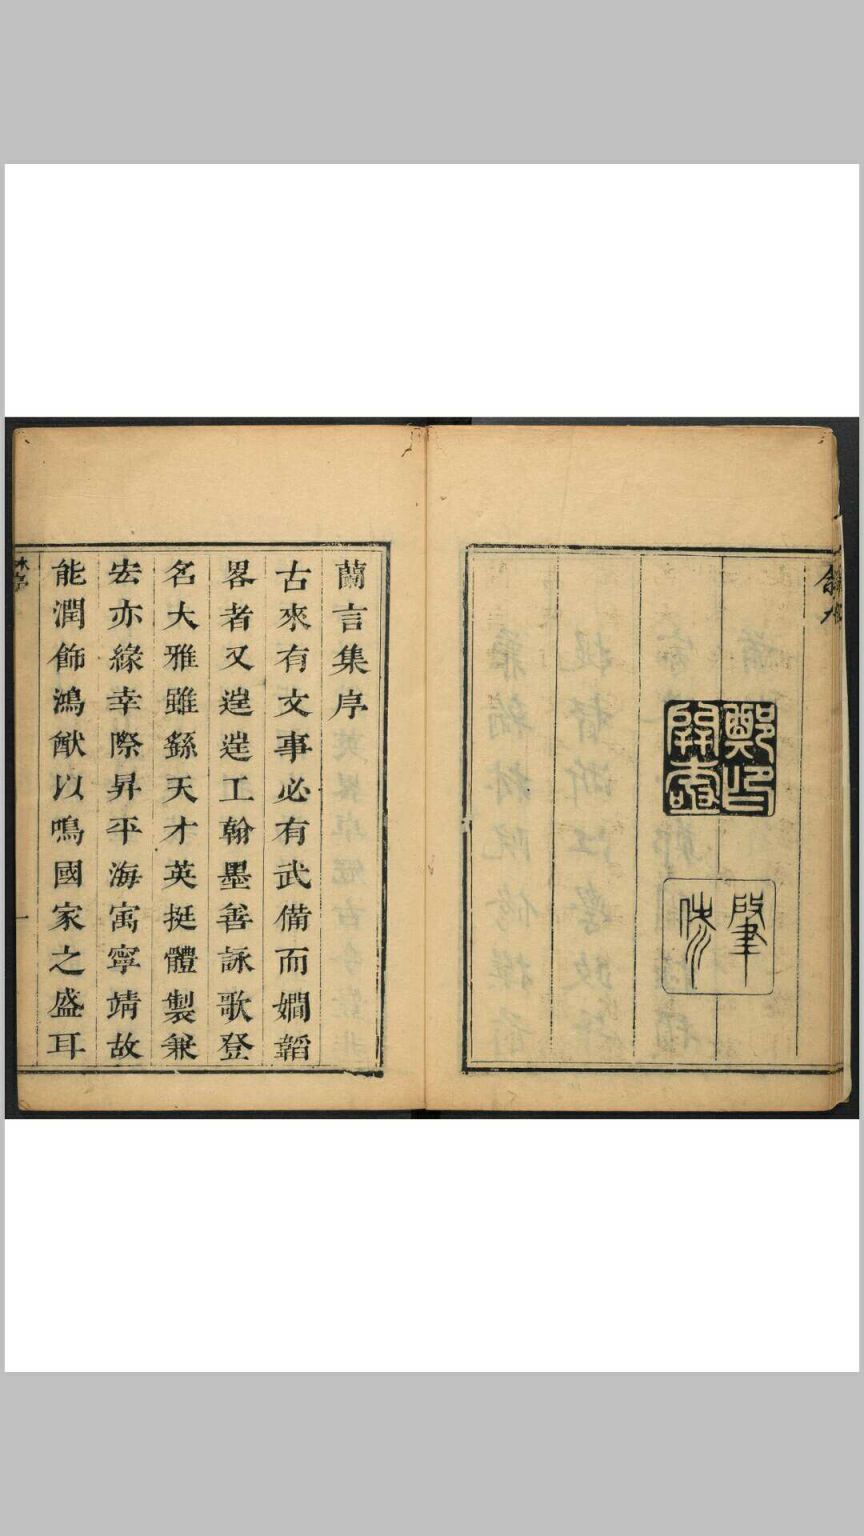 鄭印
開極
肇修
蘭言集序
古來有文事必有武備而嫺韜
畧者又往往工翰墨善詠歌登
名大雅雖繇天才英挺體製兼
宏亦緣幸際昇平海寓寧靖故
能潤飾鴻猷以鳴國家之盛耳